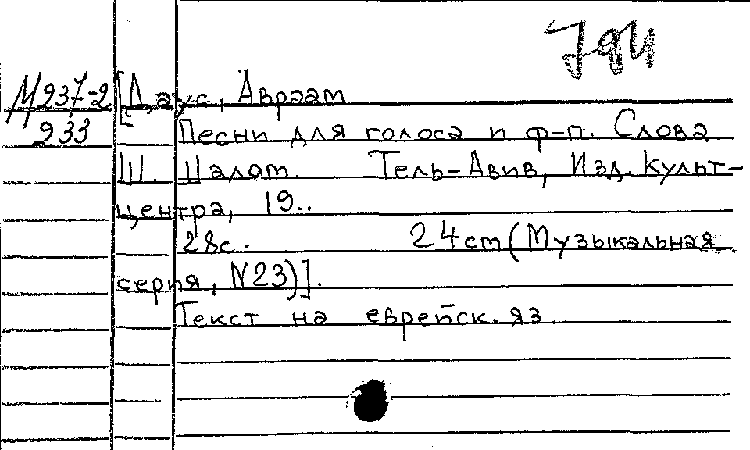 794
М937-2
933
[Даус, Авраам
Песни для голоса и ф-п. Слова
Ш. Шалом. Тель-Авив, Изд. Культ-
центра, 19..
28с. 24cm (Музыкальная
серия, N23)].
Текст на еврейск. яз.